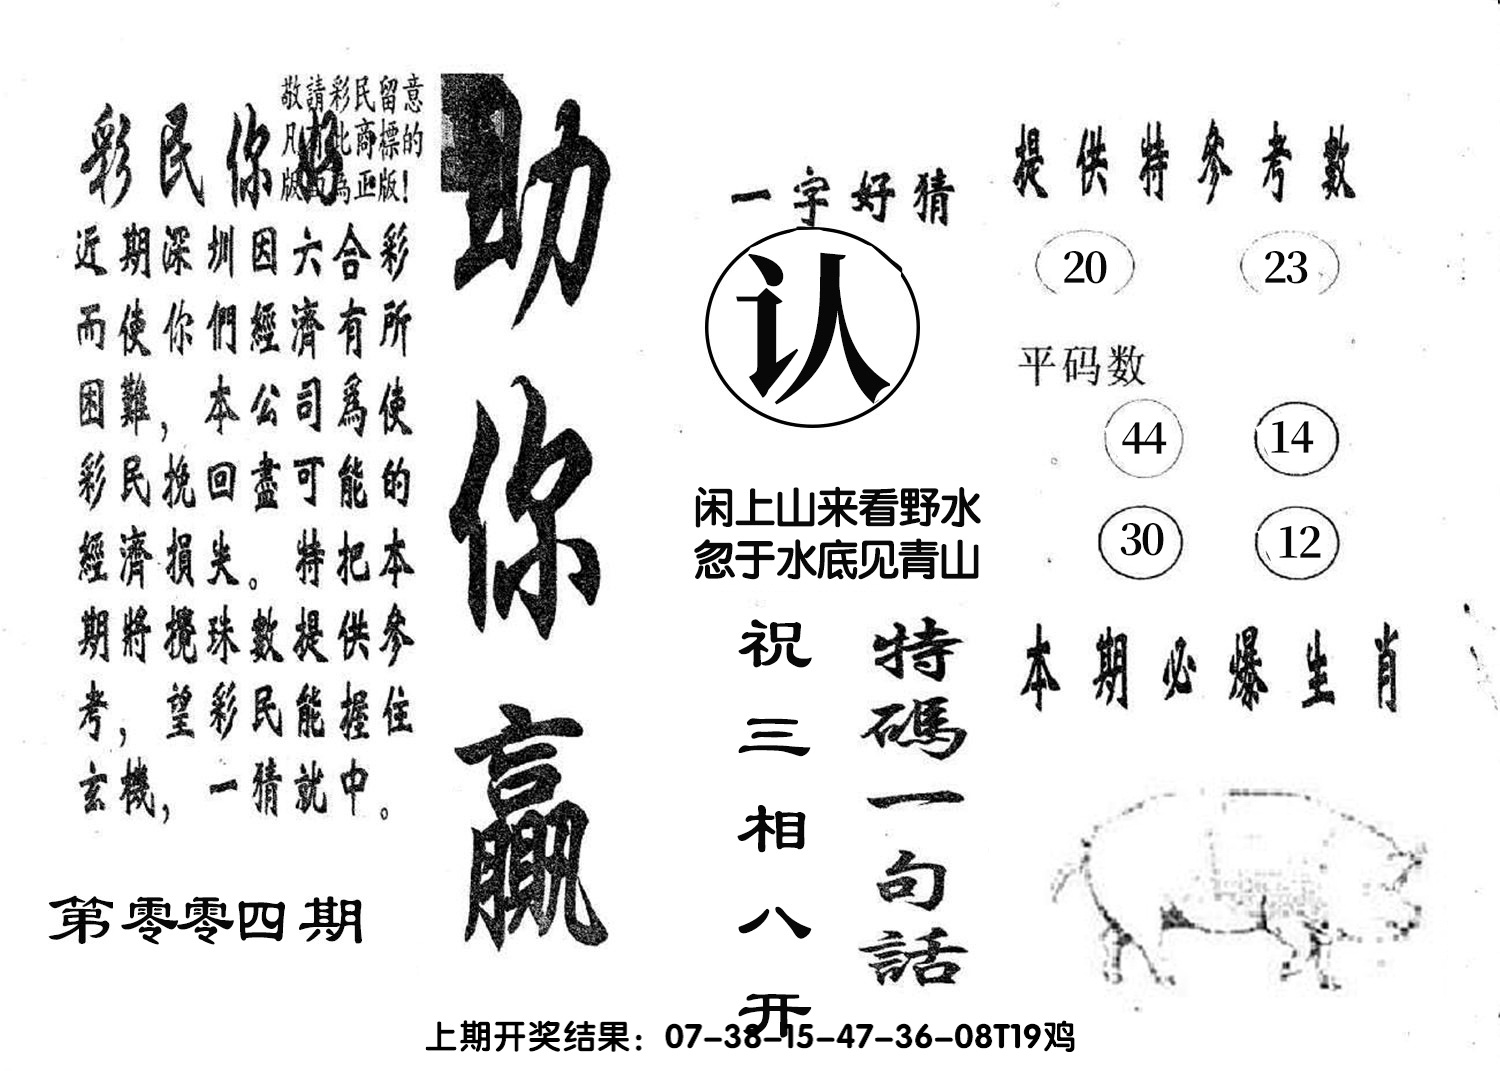 敬請彩民留意
凡有此商標的
版面為正版！
彩民你好
近期深圳因六合彩
而使你們經濟有所
困難，本公司爲使
彩民挽回盡可能的
經濟損失。特把本
期將攪珠數提供參
考，望彩民能握住
玄機，一猜就中。
第零零四期
助你贏
一字好猜
认
闲上山来看野水
忽于水底见青山
特碼一句話
祝三相八开
提供特參考數
20 23
平码数
44 14
30 12
本期必爆生肖
上期开奖结果：07-38-15-47-36-08T19鸡